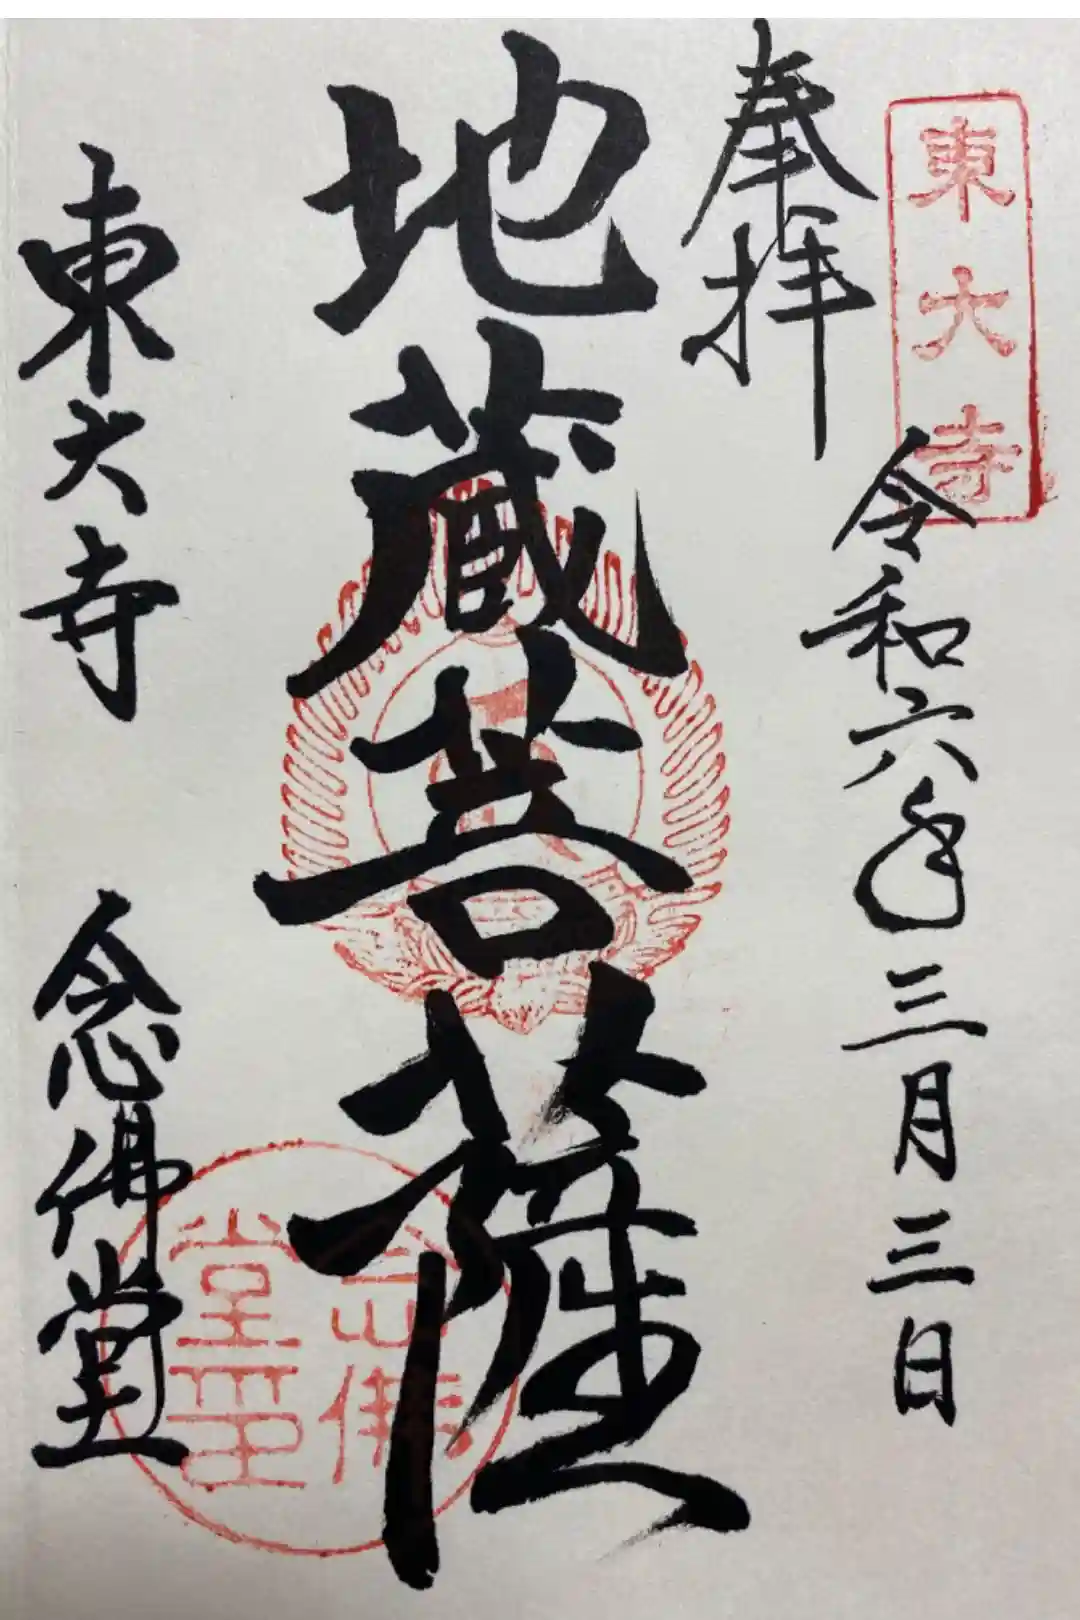 東大寺
奉拝
令和六年三月三日
地蔵菩薩
念佛堂印
東大寺 念佛堂